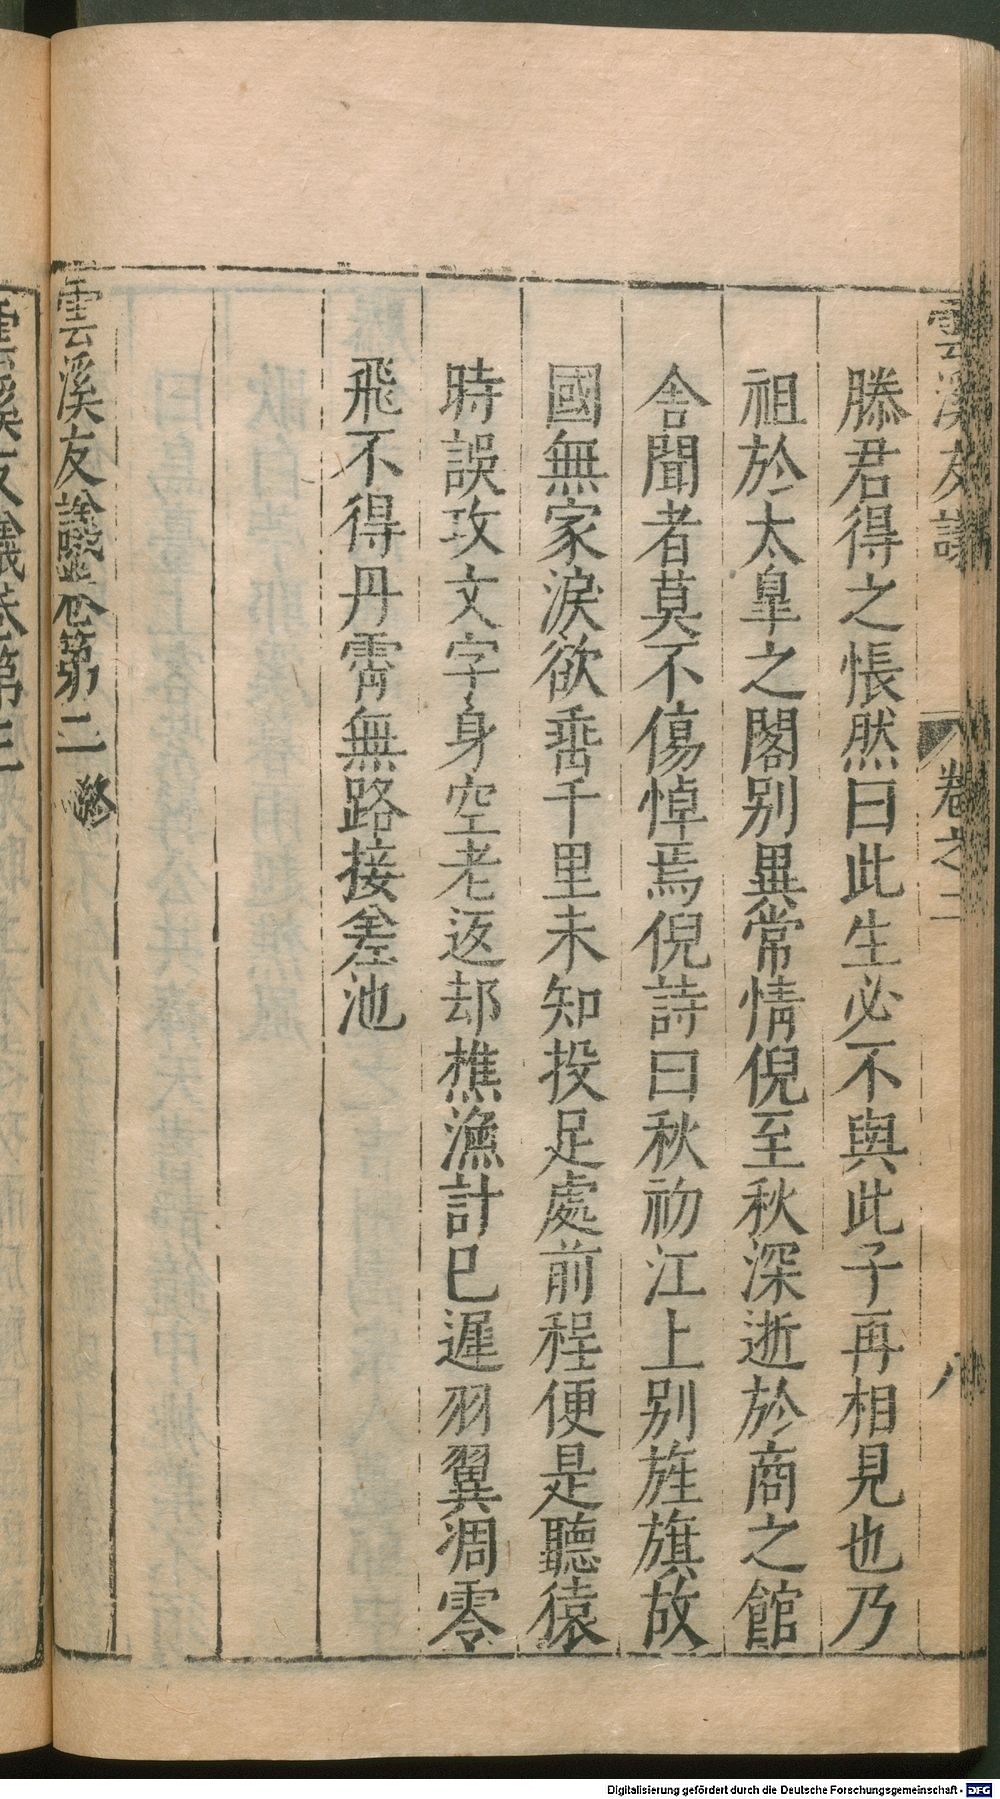 雲溪友議 卷之二 八
滕君得之悵然曰此生必不與此子再相見也乃
祖於太臯之閣别異常情倪至秋深逝於商之館
舍聞者莫不傷悼焉倪詩曰秋初江上别旌旗故
國無家淚欲垂千里未知投足處前程便是聽猿
時誤攻文字身空老返却樵漁計巳遲羽翼凋零
飛不得丹霄無路接差池
雲溪友議卷第二 終
雲溪友議卷第三
Digitalisierung gefördert durch die Deutsche Forschungsgemeinschaft - DFG